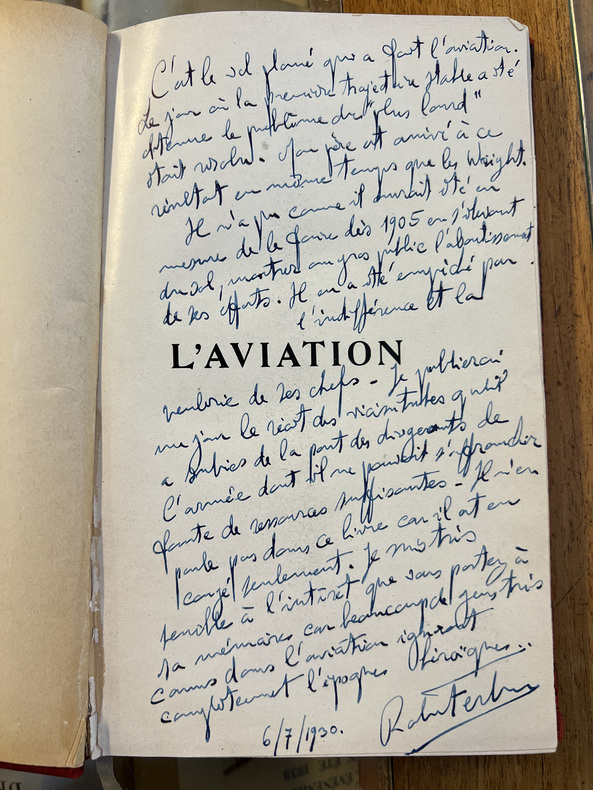 C'est le vol plané qui a fait l'aviation.
Le jour où la première trajectoire stable a été
obtenue le problème du "plus lourd"
était résolu. Mon père est arrivé à ce
résultat en même temps que les Wright.
Il n'a pu comme il aurait été en
mesure de le faire dès 1905 en s'élevant
du sol, montrer au gros public l'aboutissement
de ses efforts. Il en a été empêché par
l'indifférence et la
L'AVIATION
veulerie de ses chefs - Je publierai
un jour le récit des vicissitudes qu'il
a subies de la part des dirigeants de
l'armée dont il ne pouvait s'affranchir
faute de ressources suffisantes - Il n'en
parle pas dans ce livre car il est en
congé seulement. Je suis très
sensible à l'intérêt que vous portez à
sa mémoire car beaucoup de gens très
connus dans l'aviation ignorent
complètement l'époque héroïque...
6/7/1930.